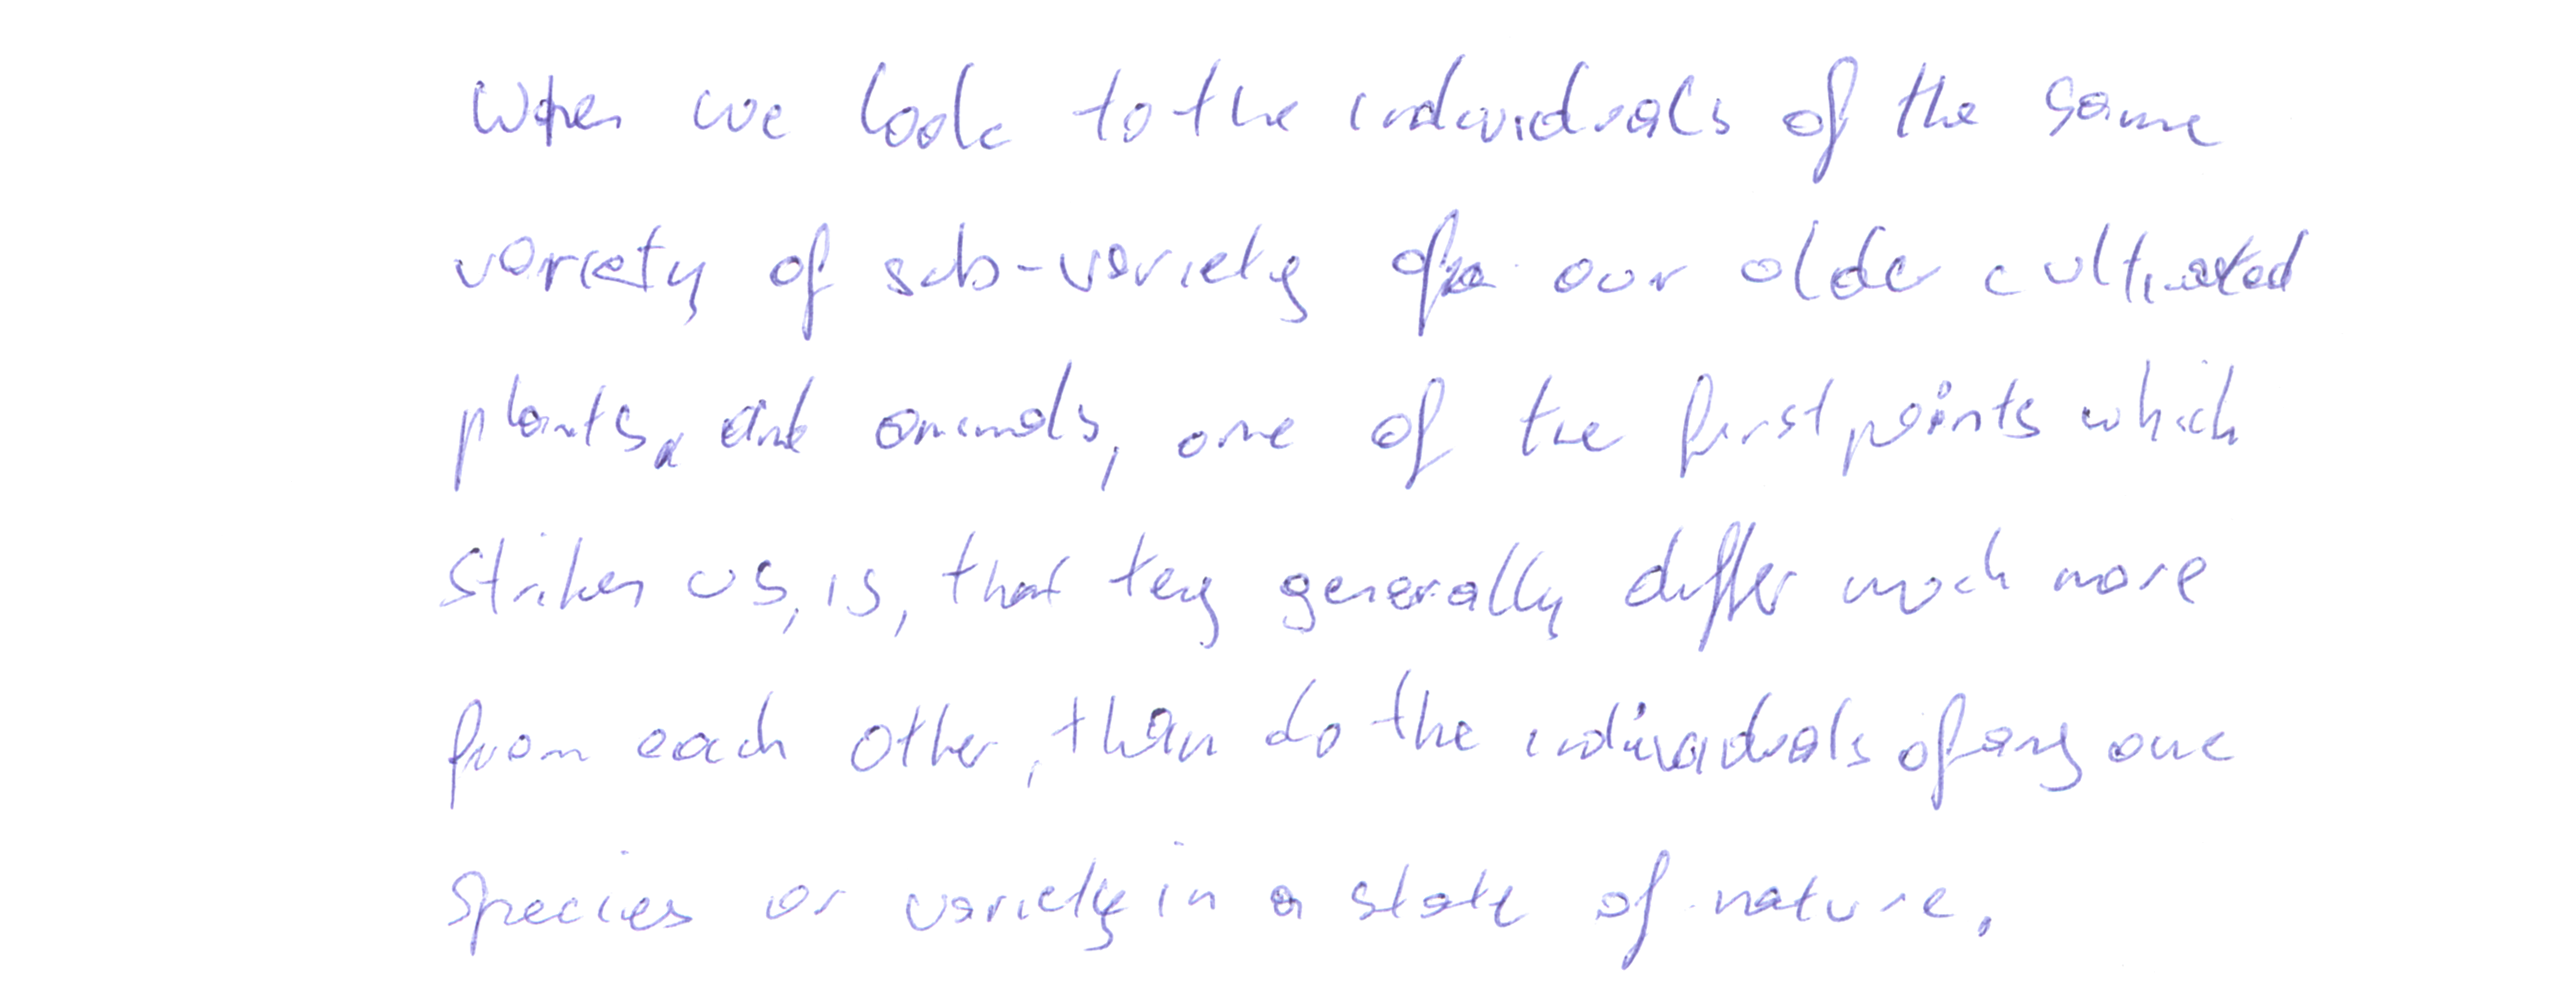 When we look to the individuals of the same
variety of sub-variety of our older cultivated
plants, and animals, one of the first points which
strikes us, is, that tey generally differ much more
from each other, than do the individuals of any one
species or variety in a state of nature.